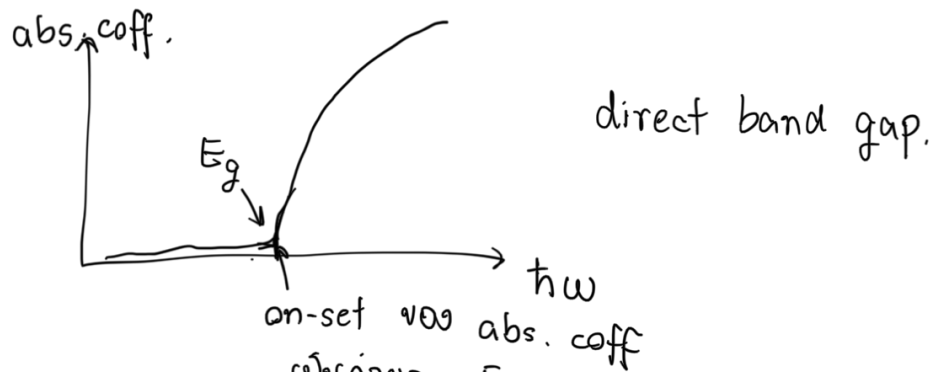 abs. coff.
direct band gap.
Eg
ħω
on-set ของ abs. coff